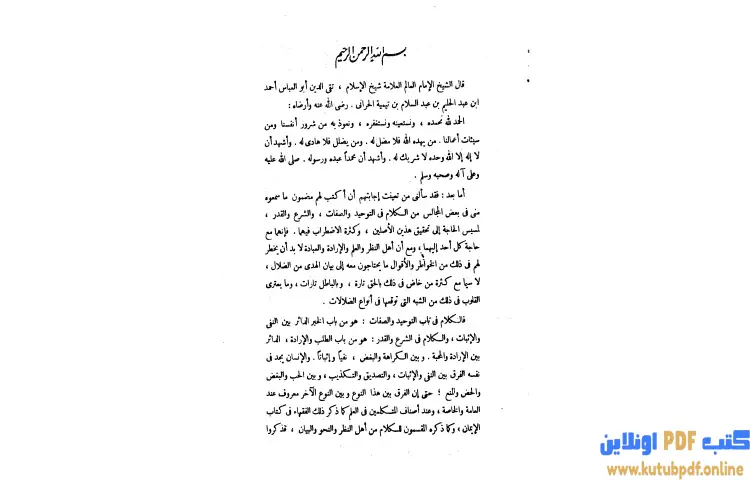 بسم الله الرحمن الرحيم
قال الشيخ الإمام العالم العلامة شيخ الإسلام ، تقى الدين أبو العباس أحمد
ابن عبد الحليم بن عبد السلام بن تيمية الحرانى . رضى الله عنه وأرضاه :
الحمد لله نحمده ، ونستعينه ونستغفره ، ونعوذ به من شرور أنفسنا ومن
سيئات أعمالنا . من يهده الله فلا مضل له . ومن يضلل فلا هادى له . وأشهد أن
لا إله إلا الله وحده لا شريك له . وأشهد أن محمداً عبده ورسوله . صلى الله عليه
وعلى آله وصحبه وسلم .
أما بعد : فقد سألنى من تعينت إجابتهم أن أكتب لهم مضمون ما سمعوه
منى فى بعض المجالس من الكلام فى التوحيد والصفات ، والشرع والقدر ،
لمسيس الحاجة إلى تحقيق هذين الأصلين ، وكثرة الاضطراب فيهما . فإنهما مع
حاجة كل أحد إليهما ، ومع أن أهل النظر والعلم والإرادة والعبادة لا بد أن يخطر
لهم فى ذلك من الخواطر والأقوال ما يحتاجون معه إلى بيان الهدى من الضلال ،
لا سيما مع كثرة من خاض فى ذلك بالحق تارة ، وبالباطل تارات ، وما يعترى
القلوب فى ذلك من الشبه التى توقعها فى أنواع الضلالات .
فالكلام فى باب التوحيد والصفات : هو من باب الخبر الدائر بين النفى
والإثبات ، والكلام فى الشرع والقدر : هو من باب الطلب والإرادة ، الدائر
بين الإرادة والمحبة . وبين الكراهة والبغض ، نفياً وإثباتاً . والإنسان يجد فى
نفسه الفرق بين النفى والإثبات ، والتصديق والتكذيب ، وبين الحب والبغض
والحض والمنع ؛ حتى إن الفرق بين هذا النوع وبين النوع الآخر معروف عند
العامة والخاصة ، وعند أصناف المتكلمين فى العلم كما ذكر ذلك الفقهاء فى كتاب
الإيمان ، وكما ذكره المقسمون للكلام من أهل النظر والنحو والبيان ، فذكروا
كتب PDF اونلاين
www.kutubpdf.online